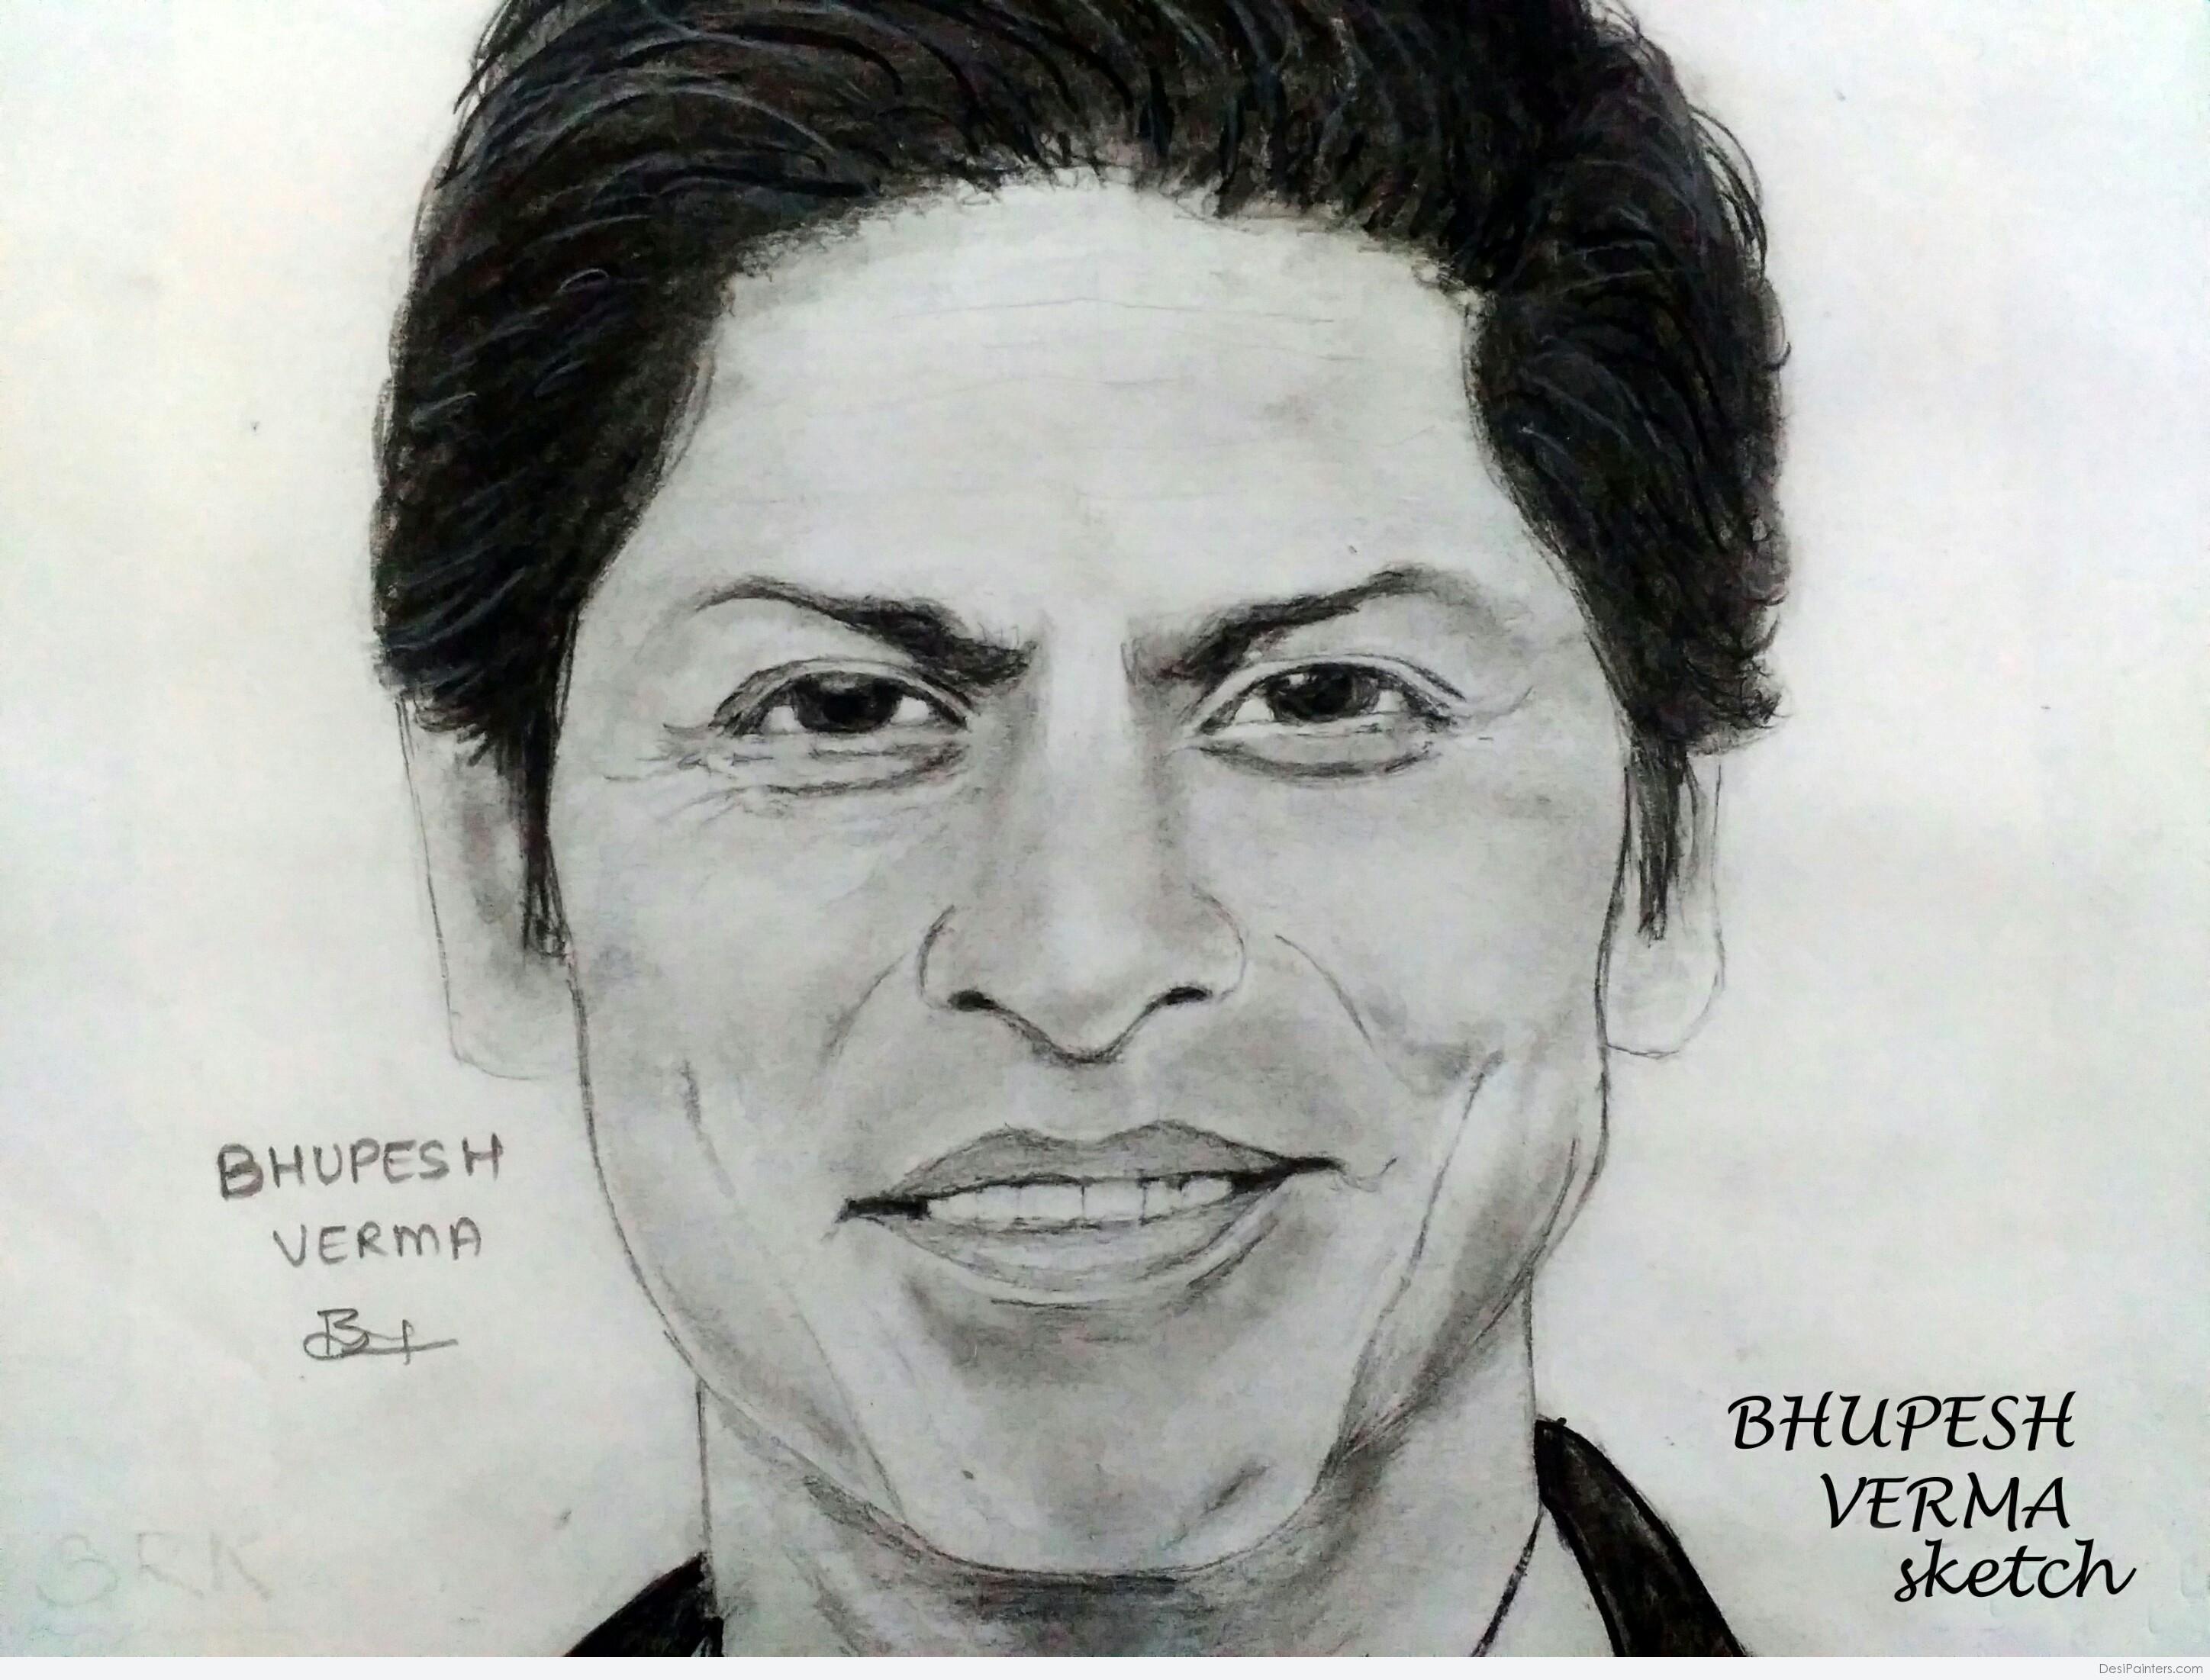 BHUPESH
VERMA
SRK
BHUPESH
VERMA
sketch
DesiPainters.com